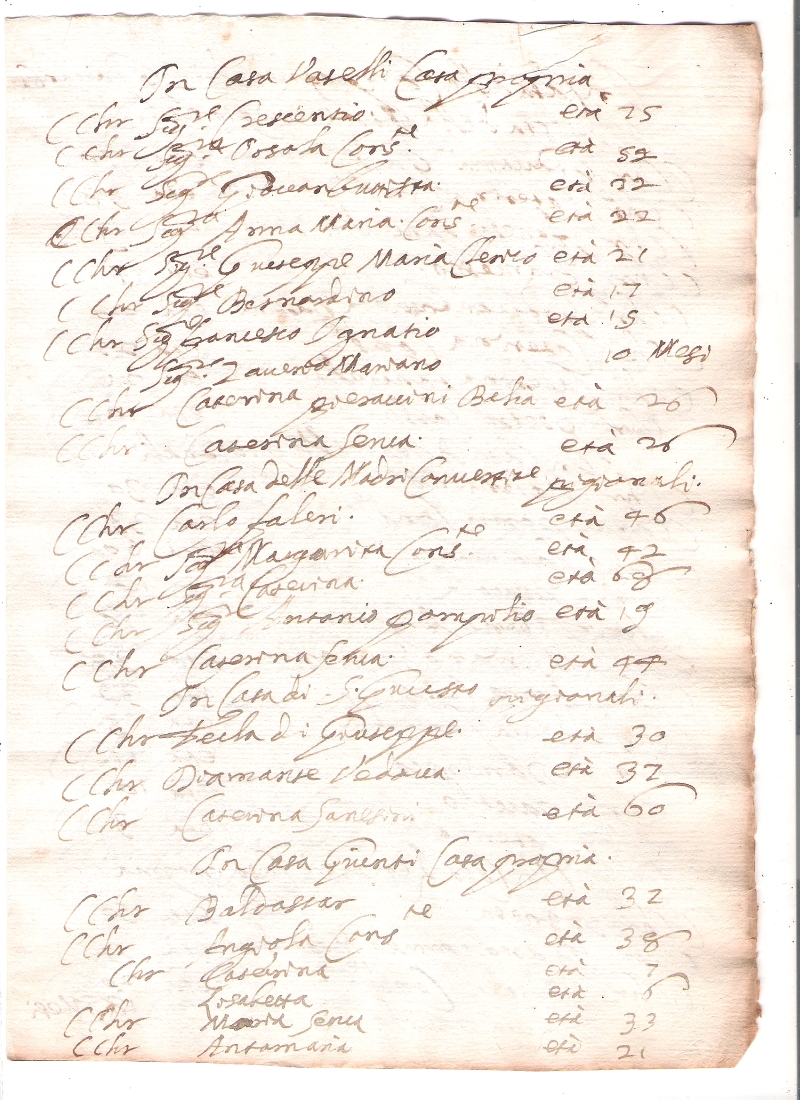 In Casa Vaselli Casa propria
CChr Sig.re Crescentio. età 75
CChr Sig.ra Orsola Cons.te età 52
CChr Sig.re Giovanbattista. età 32
CChr Sig.ra Anna Maria. Cons.te età 22
CChr Sig.re Giuseppe Maria Cherico età 21
CChr Sig.re Bernardino età 17
CChr Sig.re Francesco Ignatio età 15
Sig.re Zaverio Mariano 10 Mesi
CChr Caterina Balia età 26
CChr Caterina Serva. età 26
In Casa delle Madri Convertite pigionali.
CChr Carlo Faleri. età 46
CChr Sig.ra Margarita Cons.te età 42
CChr Sig.ra Caterina. età 68
CChr Sig.re Antonio Pompilio età 19
CChr Caterina Serva. età 44
In Casa di S. pigionali.
CChr Tecla di Giuseppe. età 30
CChr Diamante Vedova. età 37
CChr Caterina Sanesini età 60
In Casa Casa propria.
CChr Baldassar età 32
CChr Angiola Cons.te età 38
Chr Caterina età 7
Lisabetta età 6
CChr Maria Serva età 33
CChr Antamaria età 21